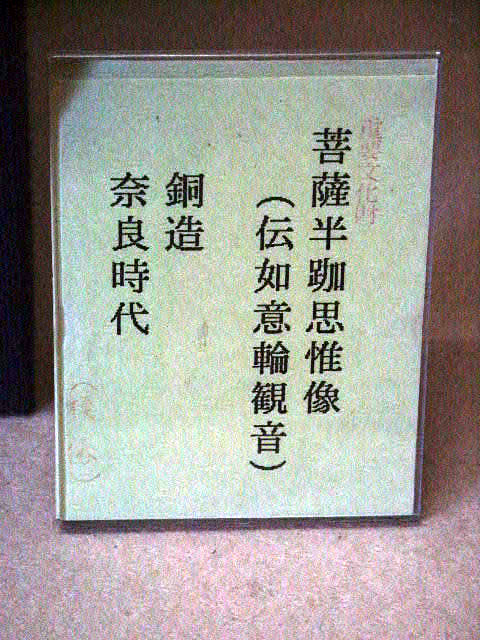 重要文化財
菩薩半跏思惟像
(伝如意輪観音)
銅造
奈良時代